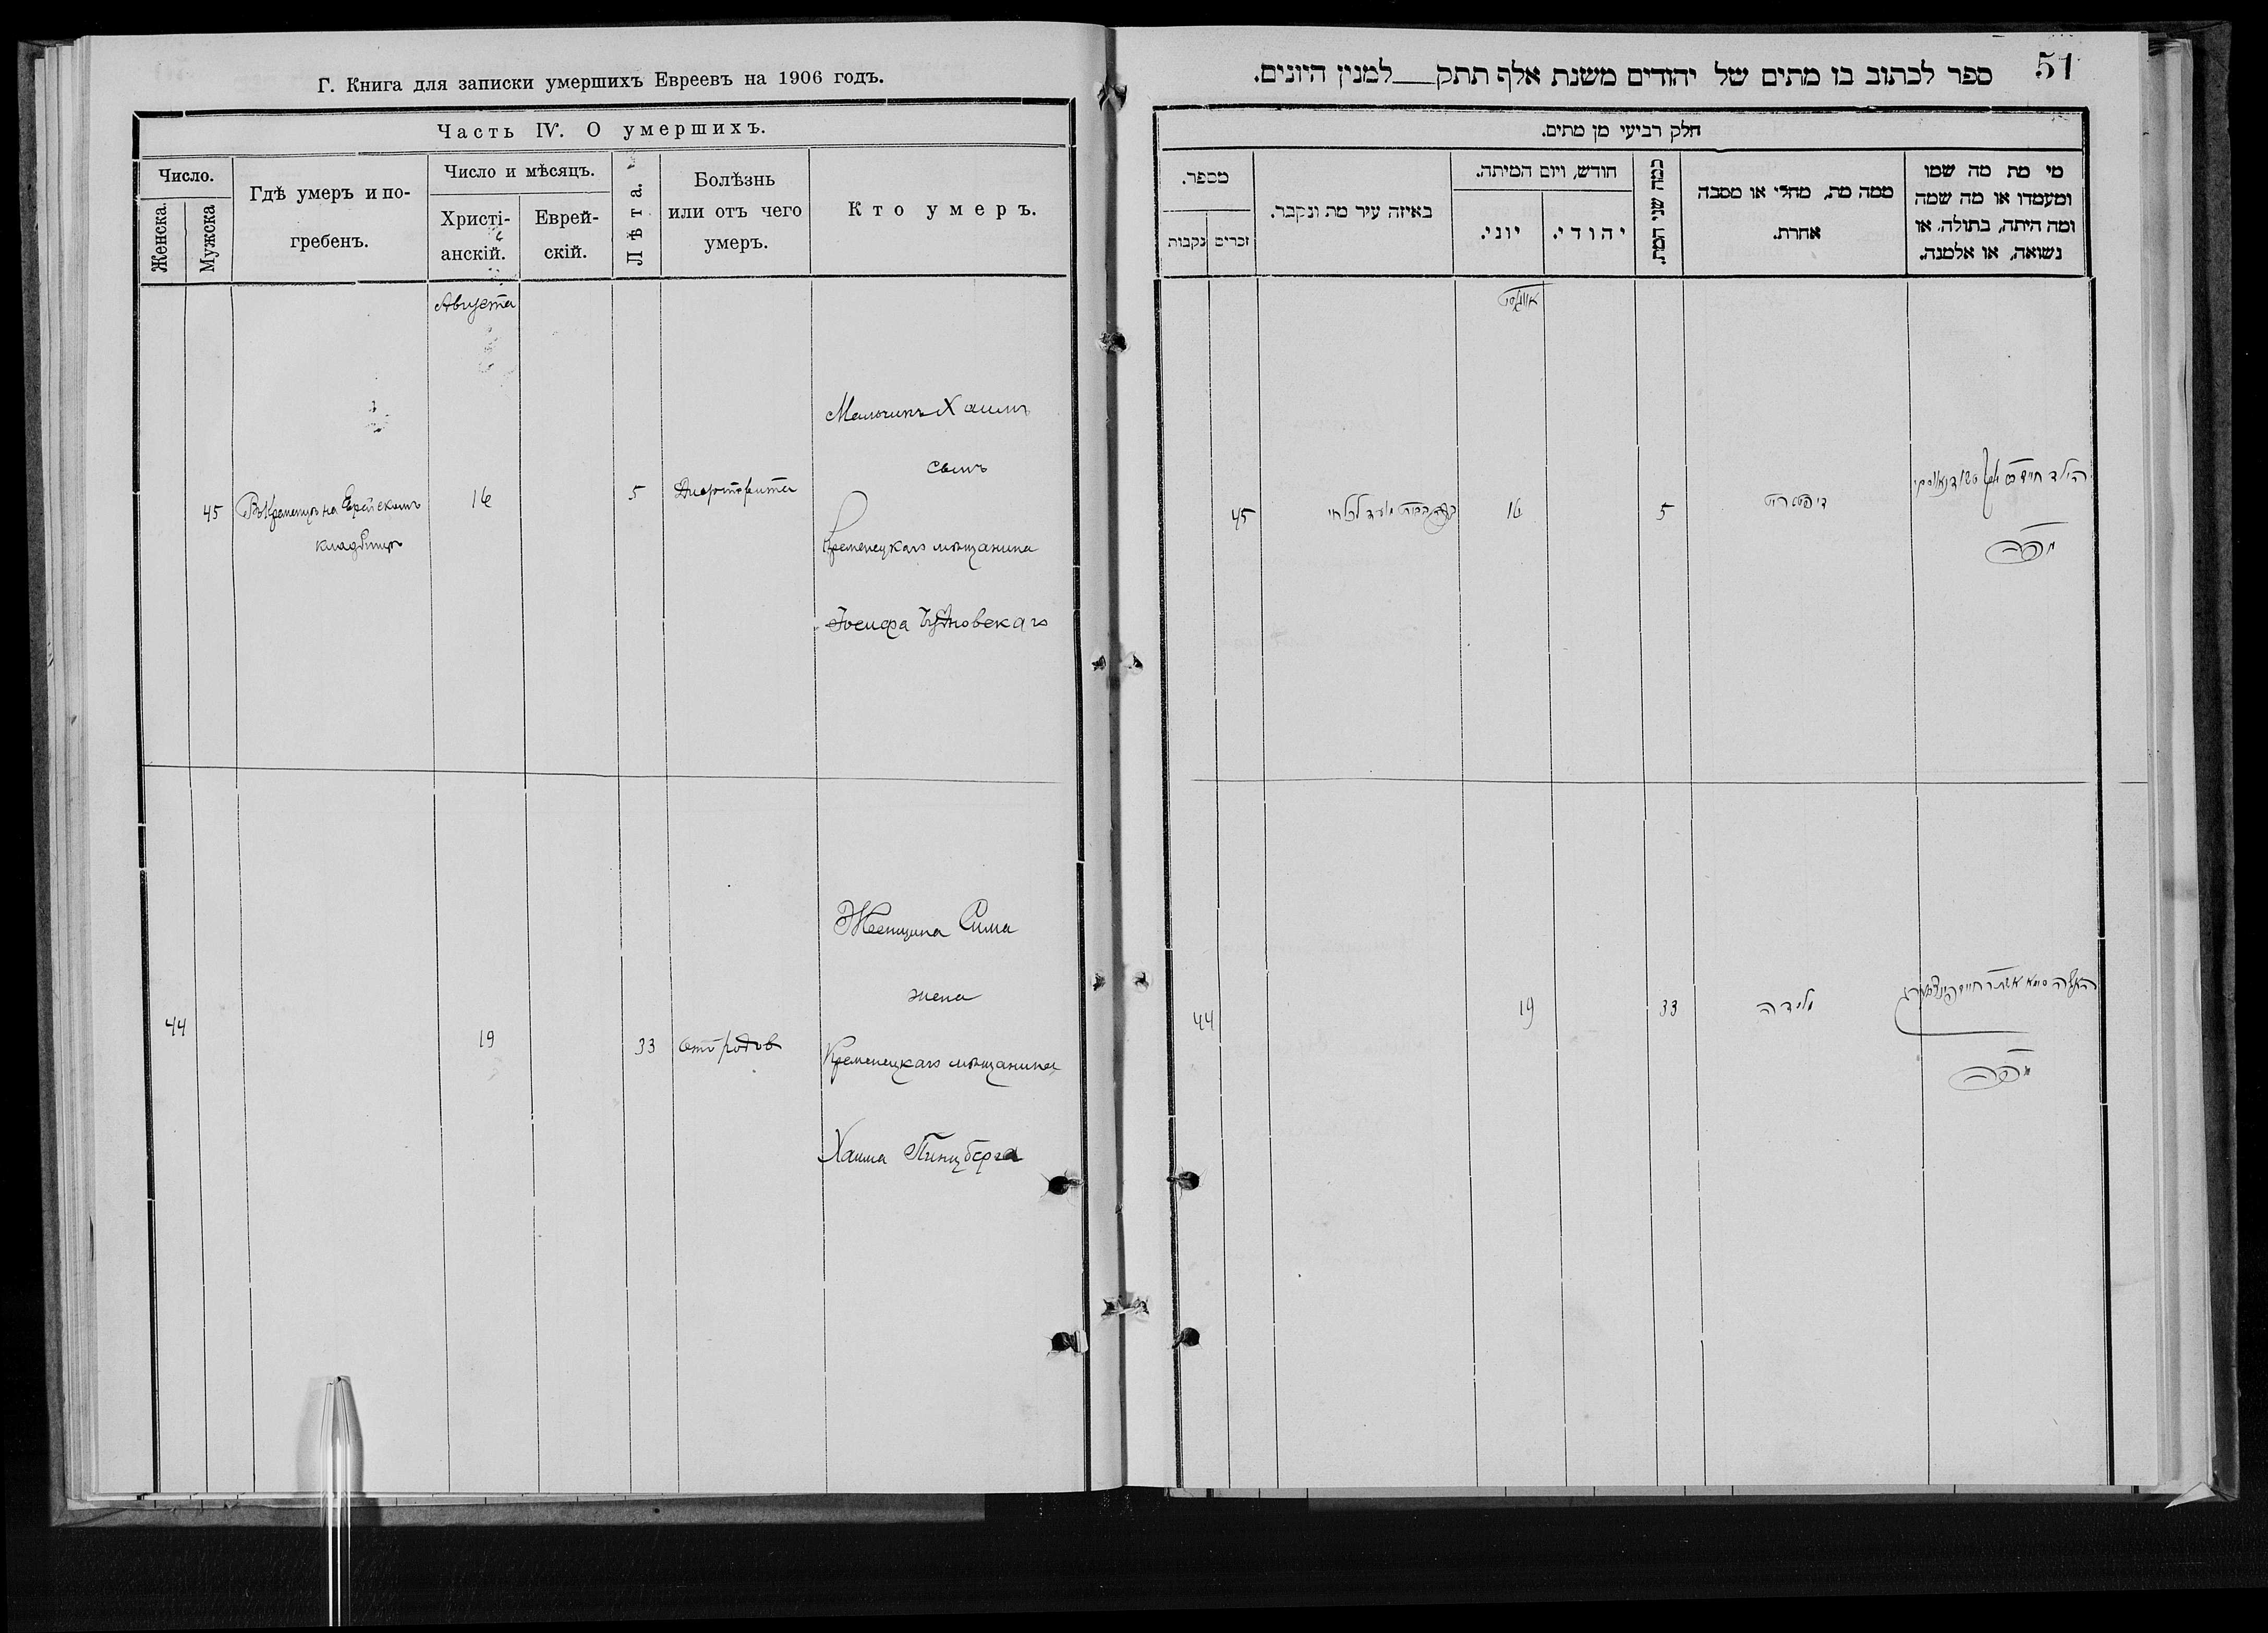 Г. Книга для записки умершихъ Евреевъ на 1906 годъ.
Часть IV. О умершихъ.
Число.
Женска.
Мужска
Гдѣ умеръ и по-
гребенъ.
Число и мѣсяцъ.
Христі-
анскій.
Еврей-
скій.
Лѣта.
Болѣзнь
или отъ чего
умеръ.
Кто умеръ.
Августа
45
Въ Кременцѣ на Еврейскомъ
кладбищѣ
16
5
Дифтерита
Мальчикъ Хаимъ
сынъ
Кременецкаго мѣщанина
Іосифа Чудновскаго
44
19
33
Отъ родов
Женщина Сима
жена
Кременецкаго мѣщанина
Хаима Гинцберга
51
ספר לכתוב בו מתים של יהודים משנת אלף תתק___למנין היונים.
חלק רביעי מן מתים.
מספר.
נקבות
זכרים
באיזה עיר מת ונקבר.
חודש, ויום המיתה.
יוני.
יהודי.
כמה שני המת.
ממה מת, מחלי או מסבה
אחרת.
מי מת מה שמו
ומעמדו או מה שמה
ומה היתה, בתולה, או
נשואה, או אלמנה.
אווגוסט
45
16
5
דיפטריט
הילד חיים
44
19
33
לידה
האשה סימא אשת ר חיים